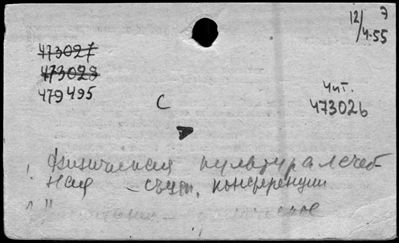 12/4.55 Э
473027
473028
479495
С
чит.
473026
1. Физическая культура лечеб-
ная – съезды, конференции